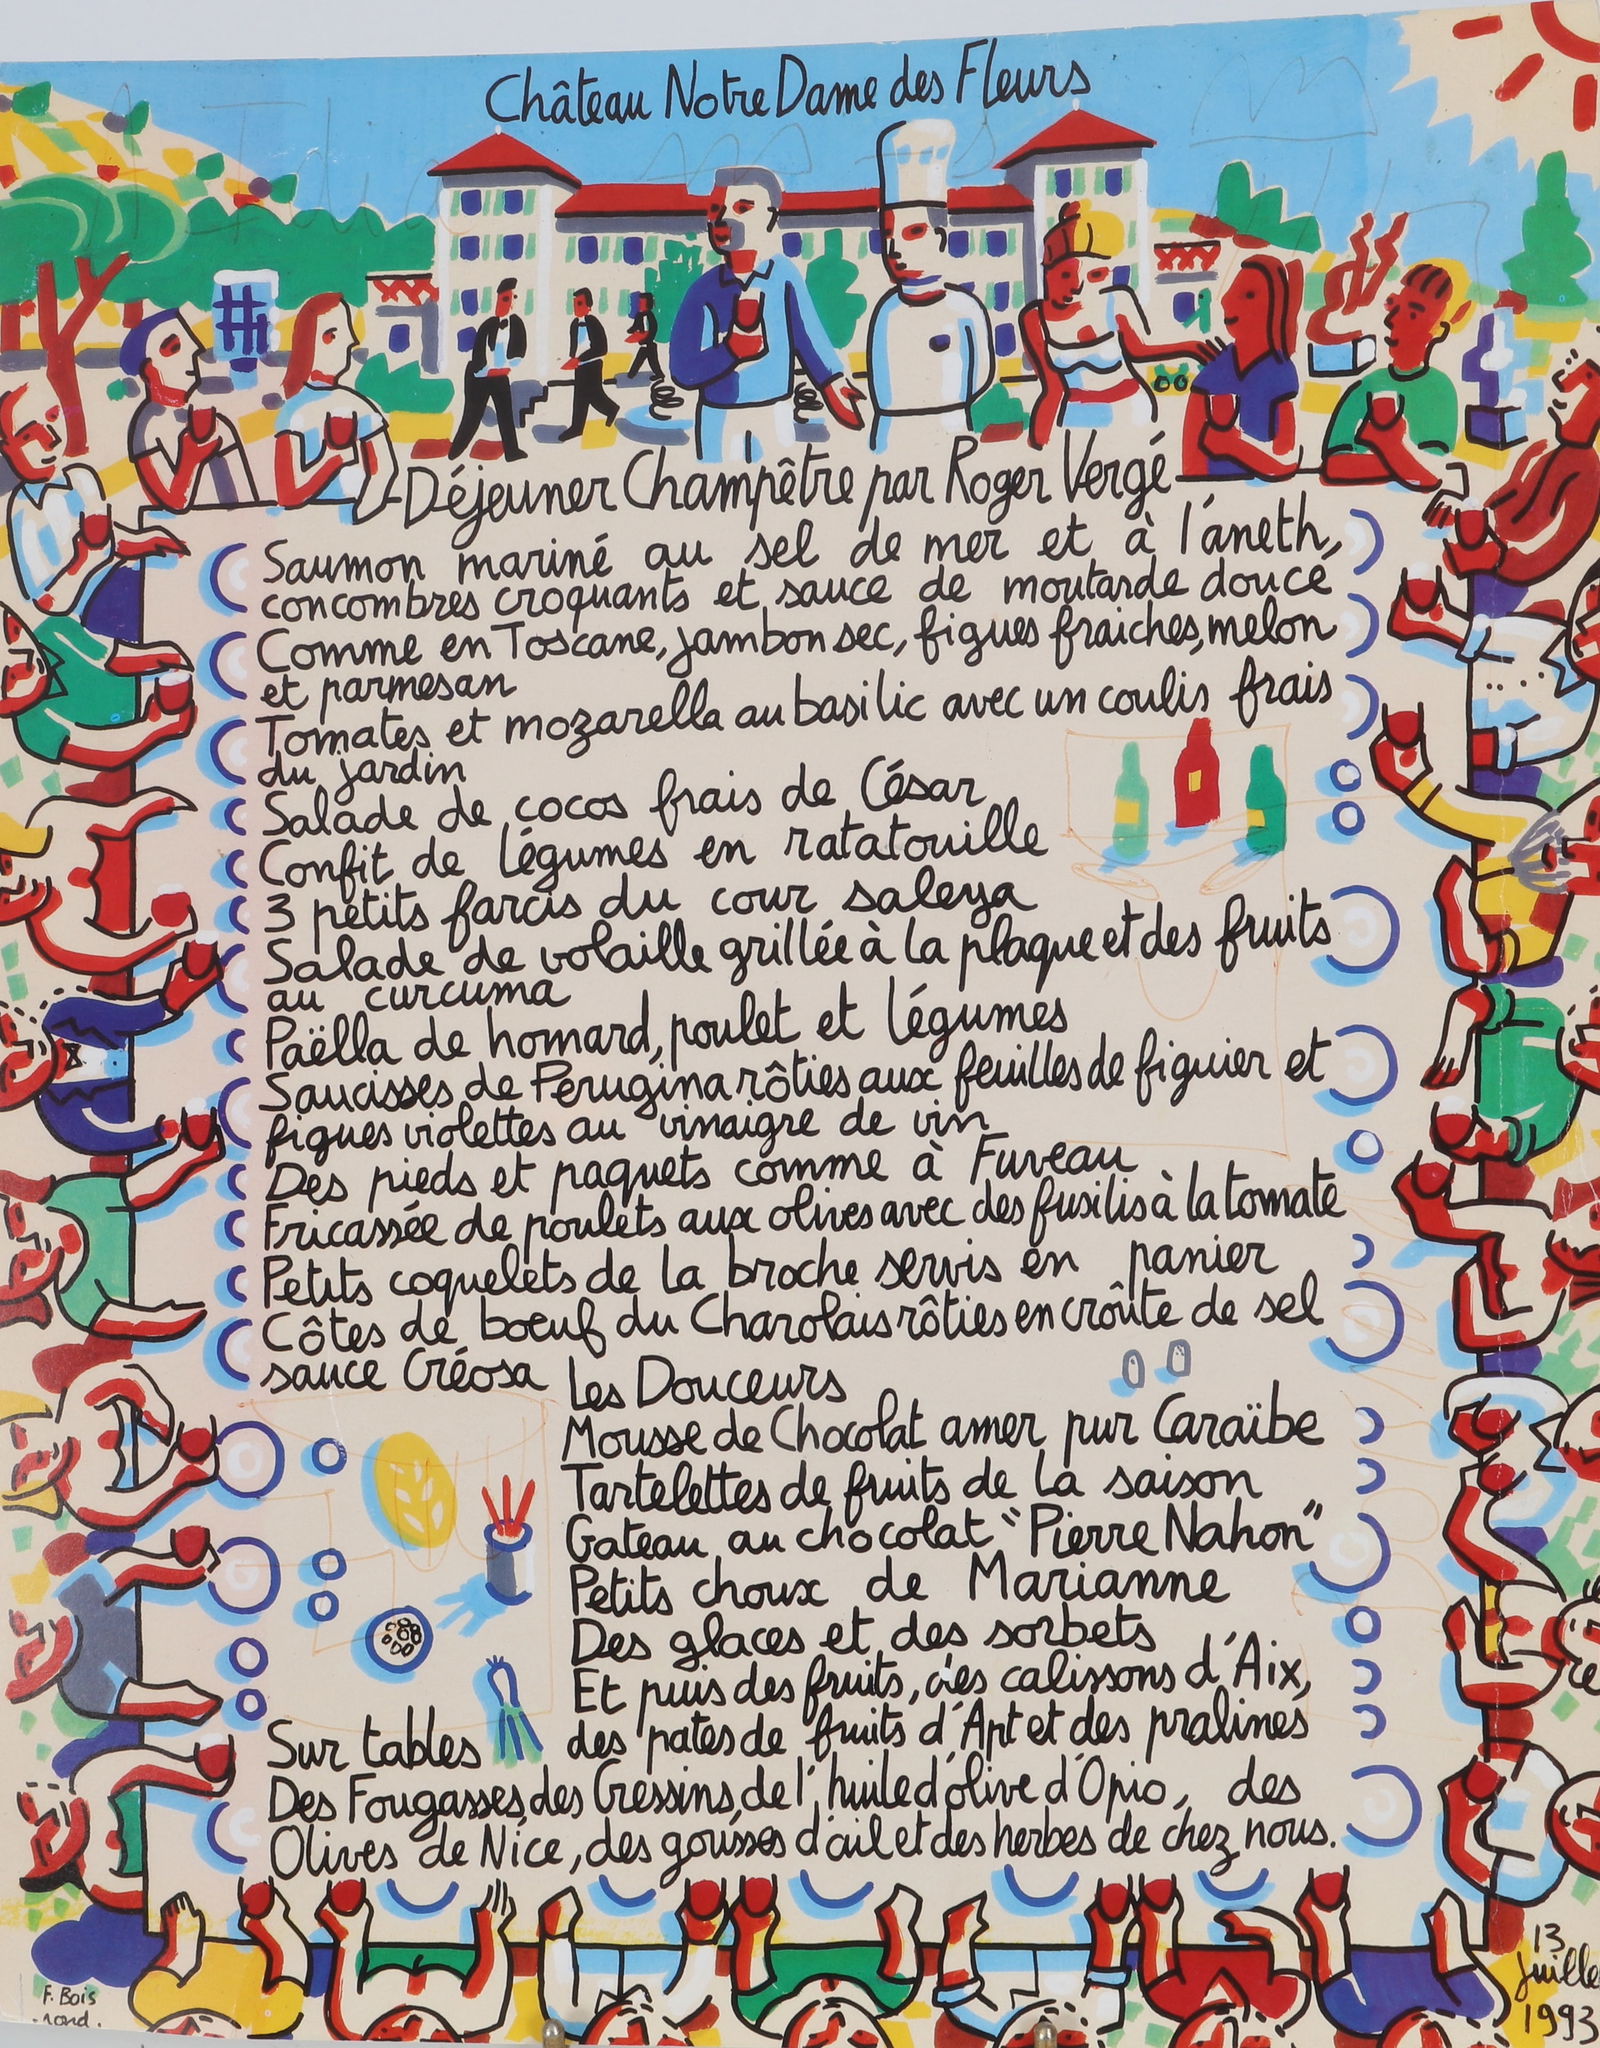 Château Notre Dame des Fleurs
Déjeuner Champêtre par Roger Vergé
Saumon mariné au sel de mer et à l'áneth,
concombres croquants et sauce de moutarde douce
Comme en Toscane, jambon sec, figues fraiches, melon
et parmesan
Tomates et mozarella au basilic avec un coulis frais
du jardin
Salade de cocos frais de César
Confit de légumes en ratatouille
3 petits farcis du cour saleya
Salade de volaille grillée à la plaque et des fruits
au curcuma
Paëlla de homard, poulet et légumes
Saucisses de Perugina rôties aux feuilles de figuier et
figues violettes au vinaigre de vin
Des pieds et paquets comme à Fuveau
Fricassée de poulets aux olives avec des fusilis à la tomate
Petits coquelets de la broche servis en panier
Côtes de boeuf du Charolais rôties en croûte de sel
sauce Créosa
Les Douceurs
Mousse de Chocolat amer pur Caraïbe
Tartelettes de fruits de la saison
Gateau au chocolat "Pierre Nahon"
Petits choux de Marianne
Des glaces et des sorbets
Et puis des fruits, des calissons d'Aix,
des pates de fruits d'Apt et des pralines
Sur tables
Des Fougasses, des Gressins, de l'huile d'olive d'Opio, des
Olives de Nice, des gousses d'ail et des herbes de chez nous.
F. Bois
rond.
13
Juillet
1993